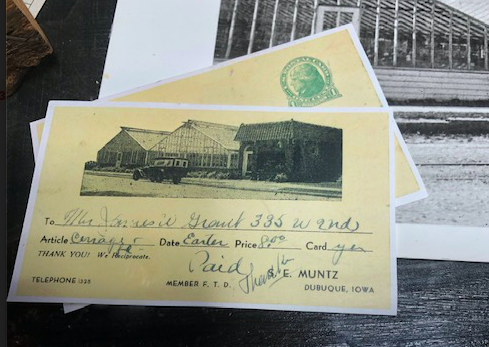 To Mrs James W Grant 335 W 2nd
Article Corsage Date Easter Price 8.00 Card yes
THANK YOU! We Reciprocate.
Paid
Thanks
S. E. MUNTZ
TELEPHONE 1325
MEMBER F. T. D.
DUBUQUE, IOWA